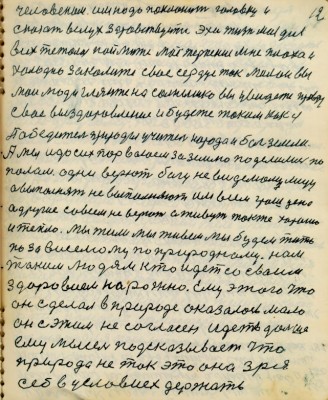 12
человеком им надо поклонит головку и
сказать вслух здравствуйте Эхи жизнь моя для
всех тяжолая поймите моё терпение мне плохо и
холодно закалите свае сердце так милаи вы
маи люди гляньте на солнышко вы увидете правду
свае выздоровление и будете таким как я
Победител природы учител народа и Бог земли.
А мы и до сих пор ваюем за землю поделилис по
полам. одни верют богу не видемому лицу
а выпалнят не выпалняют им всем грош цена
а другие савсем не верют а живут так же харашо
и тепло. Мы жили мы живем мы будем жить
по зависемому по природному. нам
таким людям кто идет со сваим
здоровием на рожно. Ему этого что
он сделал в природе оказалос мало
он с этим не согласен идет дальше
ему мысел подсказывает что
природа не так это она зря
себ в условиех держать